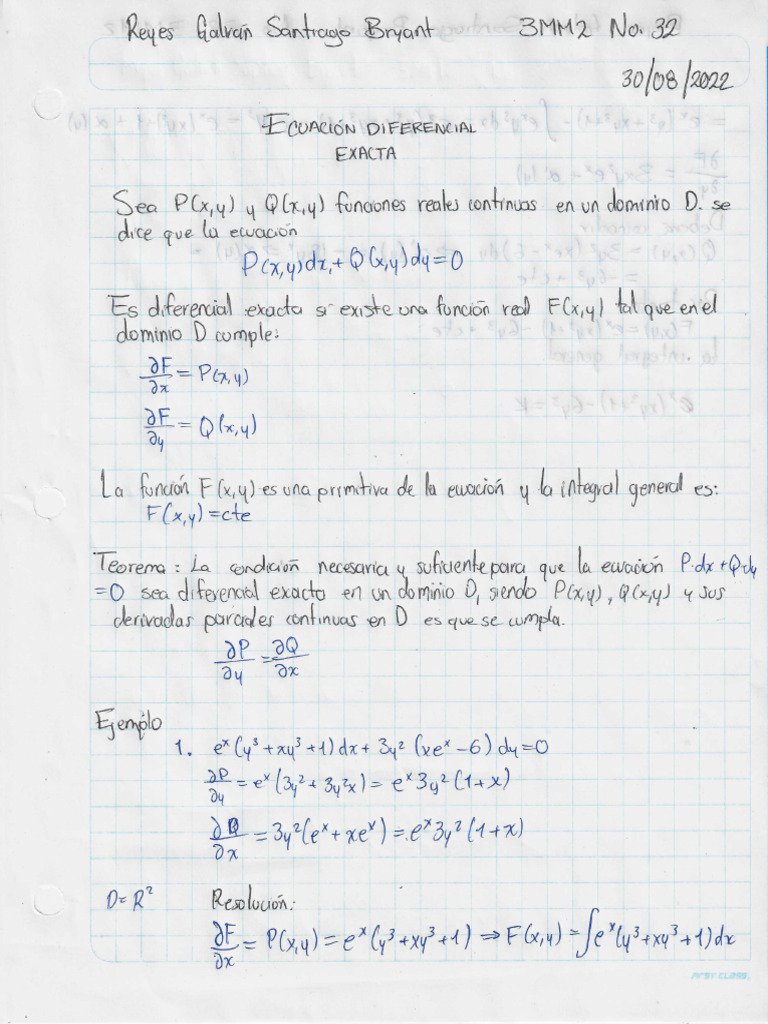 Reyes Galván Santiago Bryant 3MM2 No. 32
30/08/2022
ECUACIÓN DIFERENCIAL
EXACTA
Sea P(x,y) y Q(x,y) funciones reales continuas en un dominio D. se
dice que la ecuación
P(x,y)dx+Q(x,y)dy=0
Es diferencial exacta si existe una función real F(x,y) tal que en el
dominio D cumple:
∂F/∂x = P(x,y)
∂F/∂y = Q(x,y)
La función F(x,y) es una primitiva de la ecuación y la integral general es:
F(x,y)=cte
Teorema: La condición necesaria y suficiente para que la ecuación P·dx+Q·dy
=0 sea diferencial exacta en un dominio D, siendo P(x,y), Q(x,y) y sus
derivadas parciales continuas en D es que se cumpla.
∂P/∂y = ∂Q/∂x
Ejemplo
1. eˣ(y³+xy³+1)dx+3y²(xeˣ-6)dy=0
∂P/∂y = eˣ(3y²+3y²x) = eˣ3y²(1+x)
∂Q/∂x = 3y²(eˣ+xeˣ) = eˣ3y²(1+x)
D=R² Resolución:
∂F/∂x = P(x,y) = eˣ(y³+xy³+1) ⇒ F(x,y) = ∫eˣ(y³+xy³+1)dx